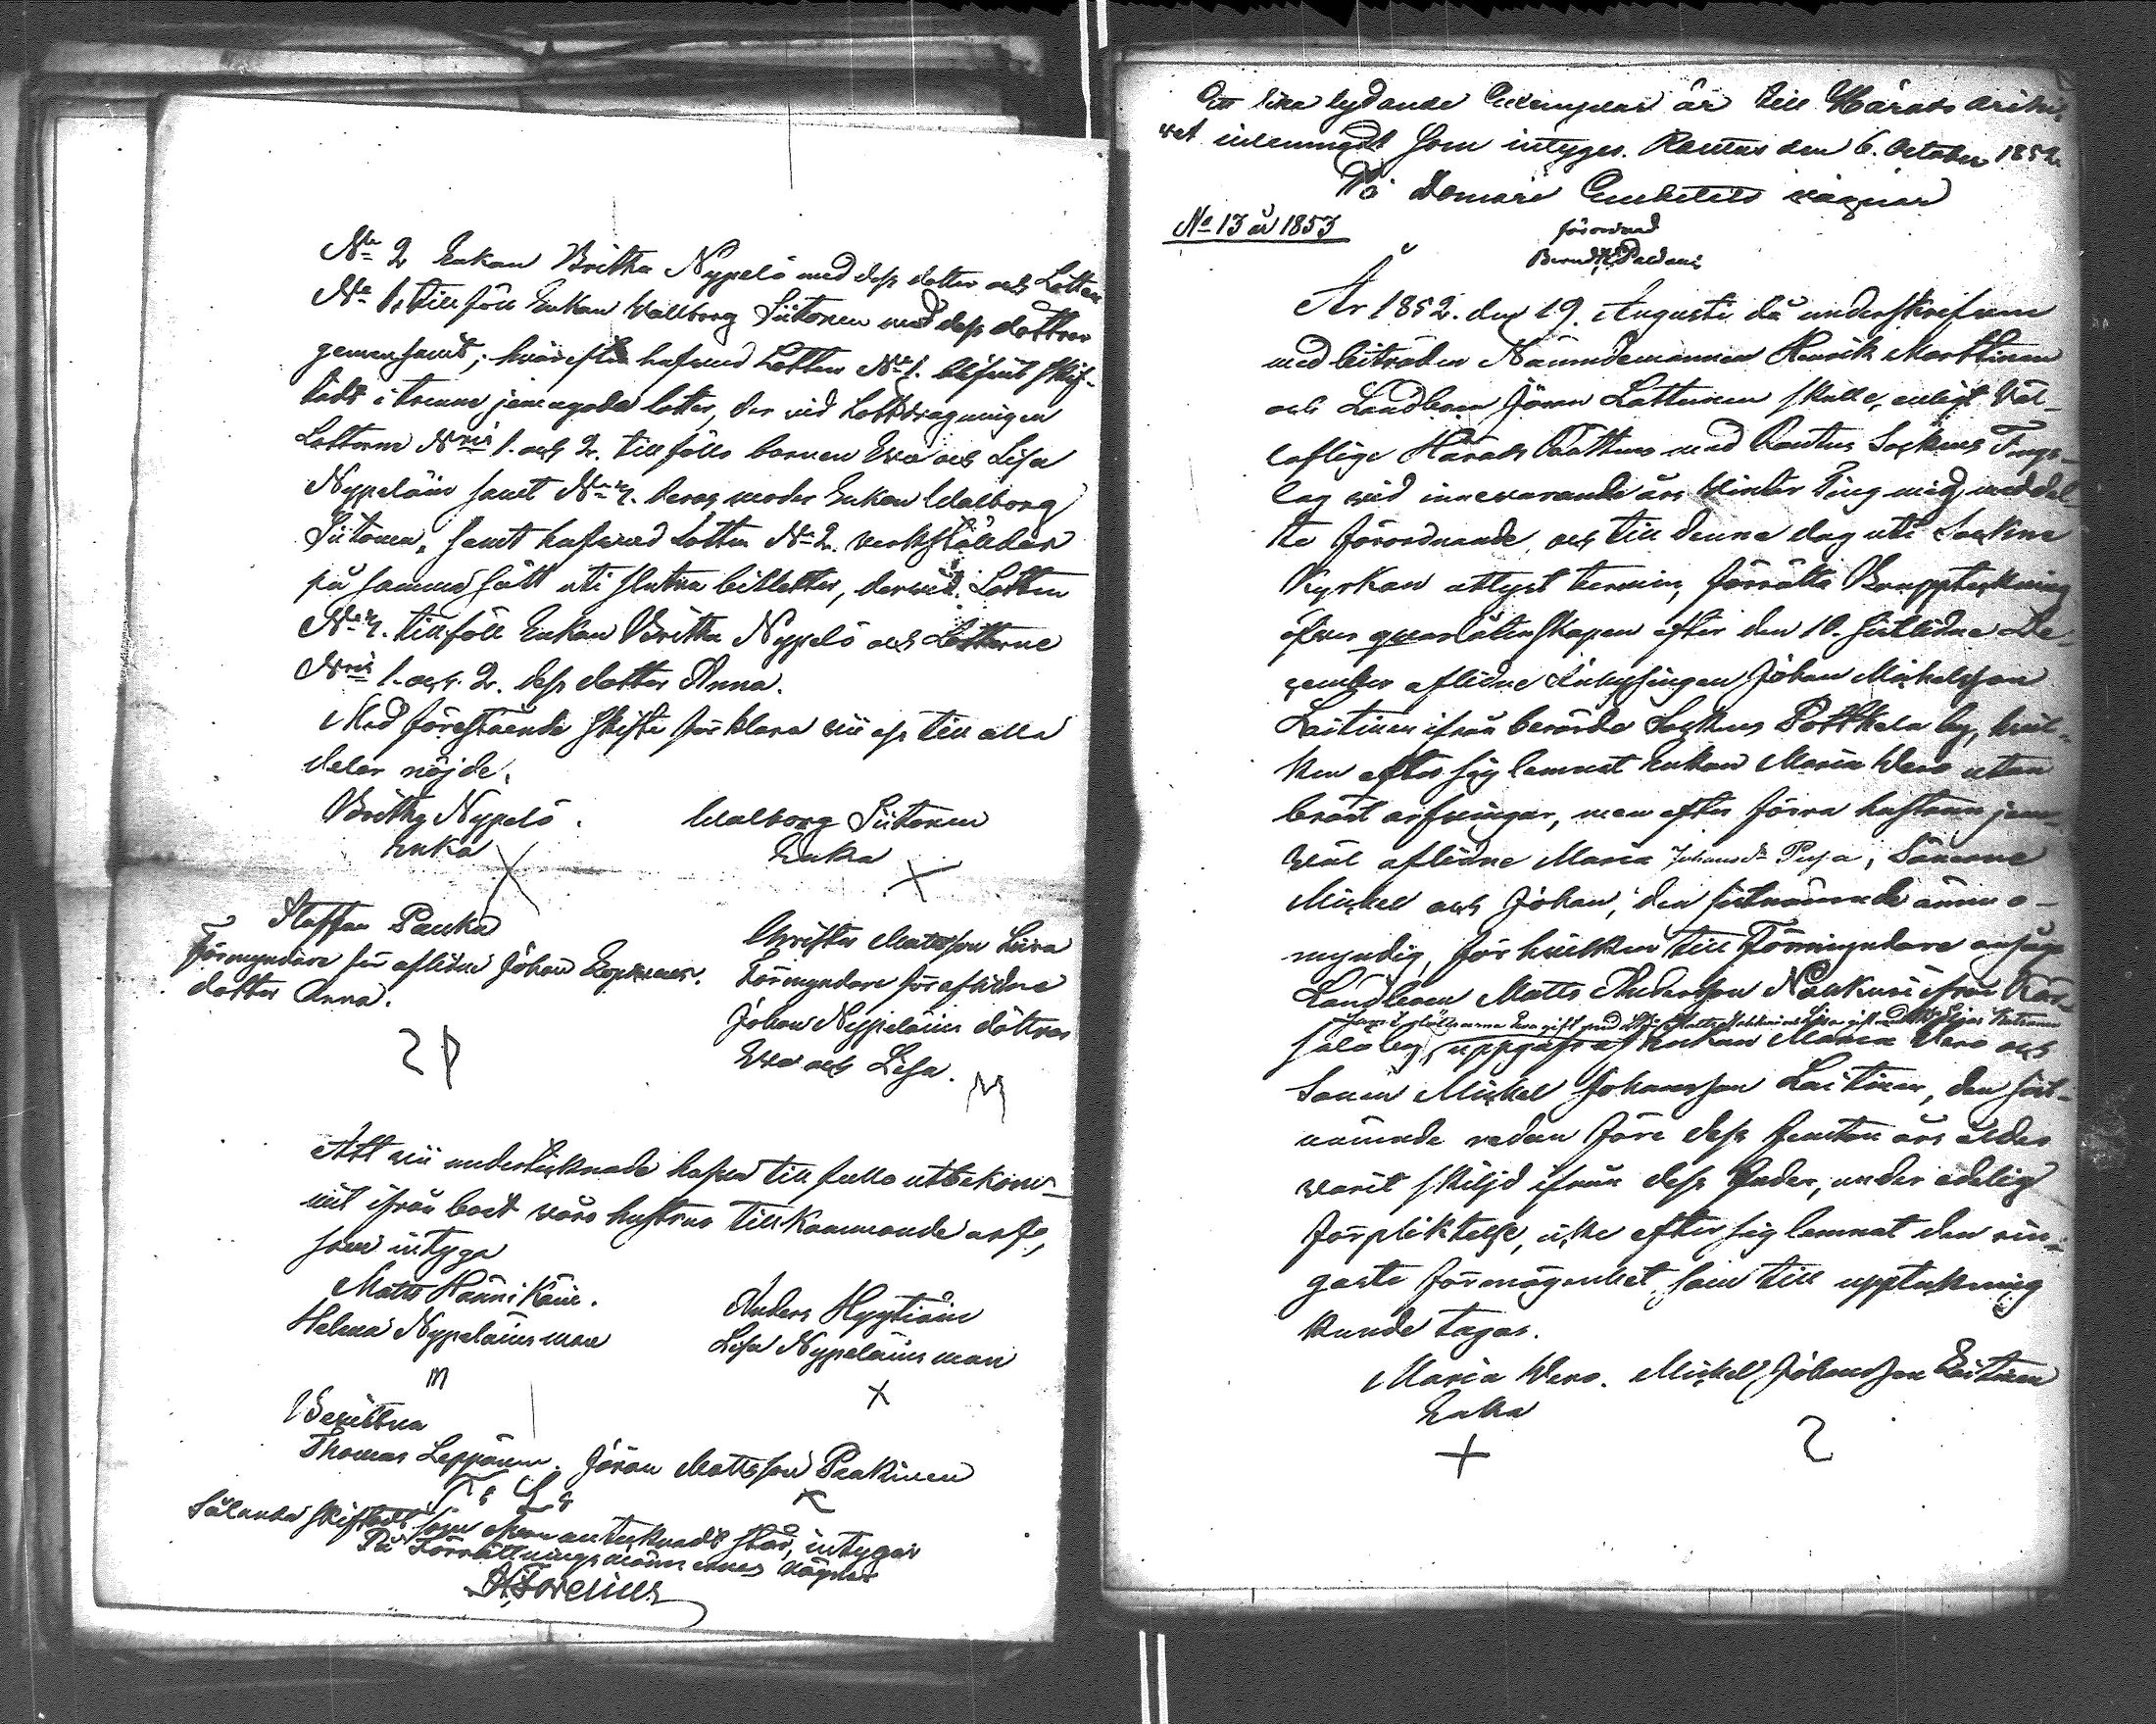 No 2 Enkan Britha Nypelö med dess dotter och Lotten
No 1, tillföll Enkan Walborg Siitonen med dess döttrar
gemensamt; hvarefter halfwa Lotten No 1. blifvit skif-
tadt i trenne jemngoda lotter, der vid Lottdragningen
Lotterne N:ris 1. och 2. tillföllo barnen Ewa och Lisa
Nypeläin samt No 3. deras moder Enkan Walborg
Siitonen, samt halfwa Lotten No 2. verkställdes
på samma sätt uti slutna billetter, dervid Lotten
No 3. tillföll Enkan Britha Nypelö och Lotterne
N:ris 1. och 2. dess dotter Anna.
Med förestående skifte förklara vii oss till alla
delar nöjde.
Britha Nypelö. Walborg Siitonen
Enka Enka
X X
Staffan Paukku Christer Mattsson Liira
Förmyndare för aflidne Johan Förmyndare för aflidne
dotter Anna. Johan Nypeläins döttrar
Ewa och Lisa.
SP M
Att vii undertecknade hafva till fullo utbekom-
mit ifrån boet våra hustrur tillkommande arf,
som intyga
Matts Hännikäin. Anders Hyytiäin
Helena Nypeläins man Lisa Nypeläins man
m X
Bevittna
Thomas Leppänen. Jöran Mattsson Paakinen
T s L s
Sålunda skiftadt som ofvan antecknadt står, intygar
På Förrättningsmännernes vägnar
Ett lika lydande Exemplar är till Härads arki-
vet inlemnadt som intyges. Rautus den 6. October 1852.
På Domare Embetets vägnar
No 13 år 1853
förordnad
År 1852. den 19. Augusti då underskrifven
med biträden Nämndemannen Henrik Marttinen
och Landbonen Jöran Lattunen skulle, enligt Väl-
loflige Härads Rättens med Rautus Sockens Tings-
lag vid innevarande års Winter Ting mig meddel-
te förordnande, och till denne dag uti Sockne
Kyrkan utlyst termin, förrätta Bouppteckning
öfver qvarlåtenskapen efter den 10. sistlidne De-
cember aflidne Inhysingen Johan Michelsson
Laitinen ifrån berörde Sockens Potkela by, hvil-
ken efter sig lemnat Enkan Maria Wero utan
bröst arfvingar, men efter förra hustrun jem-
väl aflidne Maria Johans dr Pusa, Sönerne
Mickel och Johan, den sistnämnde ännu o-
myndig, för hvilken till Förmyndare ansågs
Landbonen Matts Andersson Naukuri ifrån
salo by, uppgafs af Enkan Maria Wero och
Sonen Mickel Johansson Laitinen, den sist-
nämnde redan före dess femton års ålder
warit skiljd ifrån dess fader, under edelig
förpliktelse, icke efter sig lemnat den rin-
gaste förmögenhet, som till uppteckning
kunde tagas.
Maria Wero. Mickel Johansson Laitinen
Enka
X 2